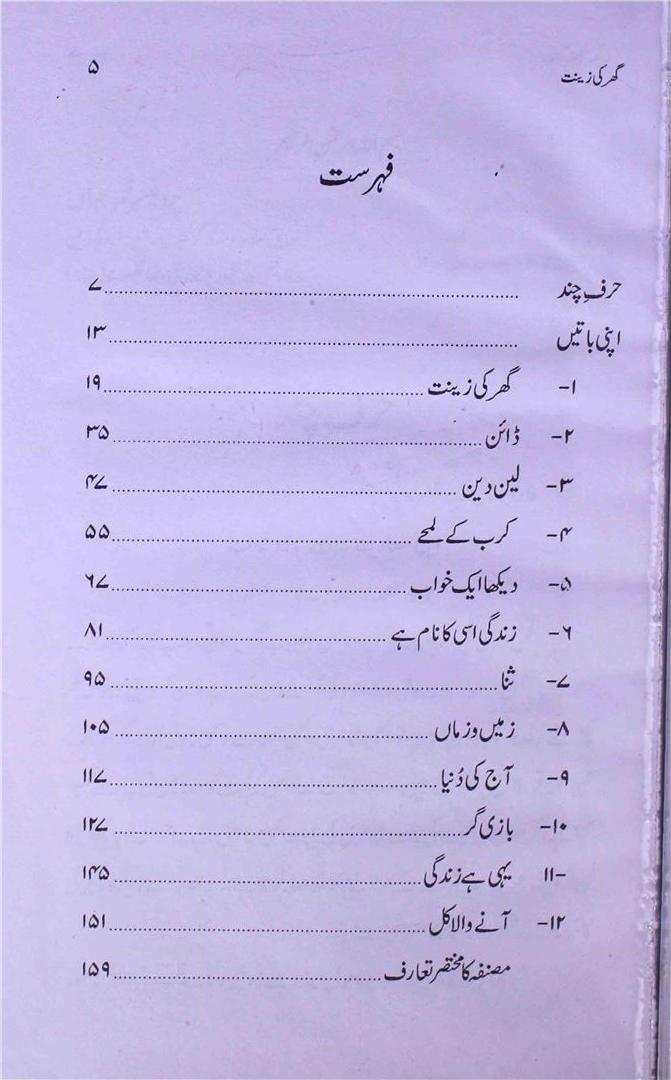 گھر کی زینت ۵
فہرست
حرفِ چند ........ ۷
اپنی باتیں ........ ۱۳
۱- گھر کی زینت ........ ۱۹
۲- ڈائن ........ ۳۵
۳- لین دین ........ ۴۷
۴- کرب کے لمحے ........ ۵۵
۵- دیکھا ایک خواب ........ ۶۷
۶- زندگی اسی کا نام ہے ........ ۸۱
۷- ثنا ........ ۹۵
۸- زمیں و زماں ........ ۱۰۵
۹- آج کی دُنیا ........ ۱۱۷
۱۰- بازی گر ........ ۱۲۷
۱۱- یہی ہے زندگی ........ ۱۴۵
۱۲- آنے والا کل ........ ۱۵۱
مصنفہ کا مختصر تعارف ........ ۱۵۹